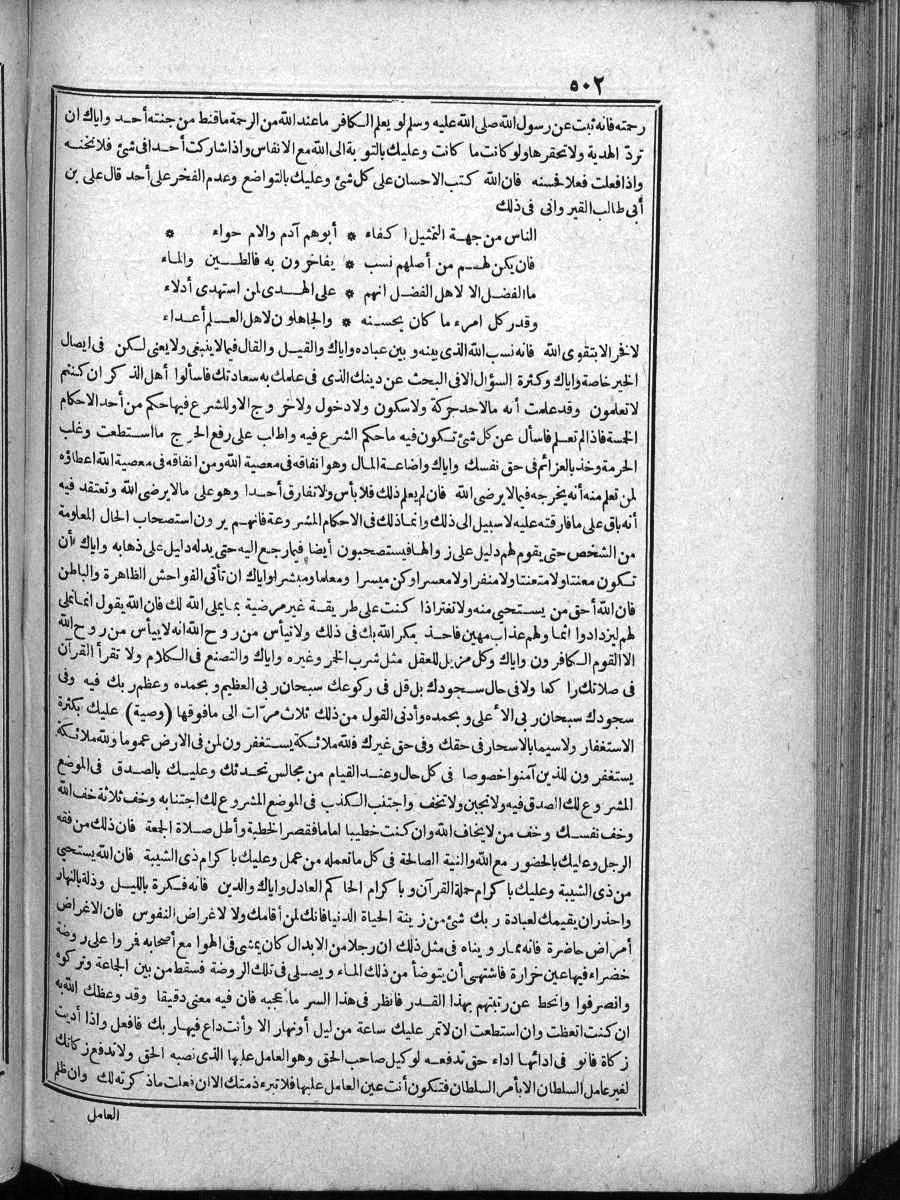 ٥٠٢
رحمته فانه ثبت عن رسول الله صلى الله عليه وسلم لو يعلم الكافر ما عند الله من الرحمة ما قنط من جنته أحد واياك ان
تردّ الهدية ولا تحقرها ولو كانت ما كانت وعليك بالتوبة الى الله مع الانفاس واذا شاركت أحدا فى شئ فلا تخنه
واذا فعلت فعلا فحسنه فان الله كتب الاحسان على كل شئ وعليك بالتواضع وعدم الفخر على أحد قال على بن
أبى طالب القيروانى فى ذلك
الناس من جهة التمثيل اكفاء * أبوهم آدم والام حواء *
فان يكن لهم من أصلهم نسب * يفاخرون به فالطين والماء
ما الفضل الا لاهل الفضل انهم * على الهدى لمن استهدى أدلاء
وقدر كل امرء ما كان يحسنه * والجاهلون لاهل العلم أعداء
لا نفر الا بتقوى الله فانه نسب الله الذى بينه وبين عباده واياك والقيل والقال فيما لا ينبغى ولا يعنى لكن فى ايصال
الخبر خاصة واياك وكثرة السؤال الا فى البحث عن دينك الذى فى علمك به سعادتك فاسألوا أهل الذكر ان كنتم
لا تعلمون وقد علمت أنه مالاحد حركة ولا سكون ولا دخول ولا خروج الا وللشرع فيها حكم من أحد الاحكام
الخمسة فاذا لم تعلم فاسأل عن كل شئ تكون فيه ما حكم الشرع فيه واطلب على رفع الحرج ما استطعت وغلب
الحرمة وخذ بالعزائم فى حق نفسك واياك واضاعة المال وهو انفاقه فى معصية الله ومن انفاقه فى معصية الله اعطاؤه
لمن تعلم منه أنه يخرجه فيما لا يرضى الله فان لم يعلم ذلك فلا بأس ولا تفارق أحدا وهو على مالا يرضى الله وتعتقد فيه
أنه باق على ما فارقته عليه لا سبيل الى ذلك وانما ذلك فى الاحكام المشروعة فانهم يرون استصحاب الحال المعلومة
من الشخص حتى يقوم لهم دليل على زوالها فيستصحبون أيضا فيما رجع اليه حتى يدله دليل على ذهابه واياك أن
تكون معنتا ولا متعنتا ولا منفرا ولا معسرا وكن ميسرا ومعلما ومبشرا واياك ان تأتى الفواحش الظاهرة والباطن
فان الله أحق من يستحيى منه ولا تغتر اذا كنت على طريقة غير مرضية بما يملى الله لك فان الله يقول انما نملى
لهم ليزدادوا اثما ولهم عذاب مهين فاحذر مكر الله بك فى ذلك ولا تيأس من روح الله انه لا ييأس من روح الله
الا القوم الكافرون واياك وكل مزيل للعقل مثل شرب الخمر وغيره واياك والتصنع فى الكلام ولا تقرأ القرآن
فى صلاتك راكعا ولا فى حال سجودك بل قل فى ركوعك سبحان ربى العظيم وبحمده وعظم ربك فيه وفى
سجودك سبحان ربى الأعلى وبحمده وأدنى القول من ذلك ثلاث مرّات الى ما فوقها (وصية) عليك بكثرة
الاستغفار ولا سيما بالاسحار فى حقك وفى حق غيرك فلله ملائكة يستغفرون لمن فى الارض عموما ولله ملائكة
يستغفرون للذين آمنوا خصوصا فى كل حال وعند القيام من مجالس تحدثك وعليك بالصدق فى الموضع
المشروع لك الصدق فيه ولا تجبن ولا تخف واجتنب الكذب فى الموضع المشروع لك اجتنابه وخف ثلاثة خف الله
وخف نفسك وخف من لا يخاف الله وان كنت خطيبا اماما فقصر الخطبة وأطل صلاة الجمعة فان ذلك من فقه
الرجل وعليك بالحضور مع الله والنية الصالحة فى كل ما تعمله من عمل وعليك باكرام ذى الشيبة فان الله يستحيى
من ذى الشيبة وعليك باكرام حملة القرآن وباكرام الحاكم العادل واياك والدين فانه فكرة بالليل وذلة بالنهار
واحذر ان يقيمك لعبادة ربك شئ من زينة الحياة الدنيا فانك لمن أقامك ولا لاغراض النفوس فان الاغراض
أمراض حاضرة فانه مما رويناه فى مثل ذلك ان رجلا من الابدال كان يمشى فى الهوا مع أصحابه فروا على روضة
خضراء فيها عين خرارة فاشتهى أن يتوضأ من ذلك الماء ويصلى فى تلك الروضة فسقط من بين الجماعة وتركوه
وانصرفوا وانحط عن رتبتهم بهذا القدر فانظر فى هذا السر ما عجبه فان فيه معنى دقيقا وقد وعظك الله به
ان كنت اتعظت وان استطعت ان لا تمر عليك ساعة من ليل أو نهار الا وأنت داع فيها ربك فافعل واذا أديت
زكاة فانو فى ادائها اداء حق تدفعه لوكيل صاحب الحق وهو العامل عليها الذى نصبه الحق ولا تدفع زكاتك
لغير عامل السلطان الا بأمر السلطان فتكون أنت عين العامل عليها فلا تبرء ذمتك الا ان فعلت ما ذكرته لك وان ظلم
العامل